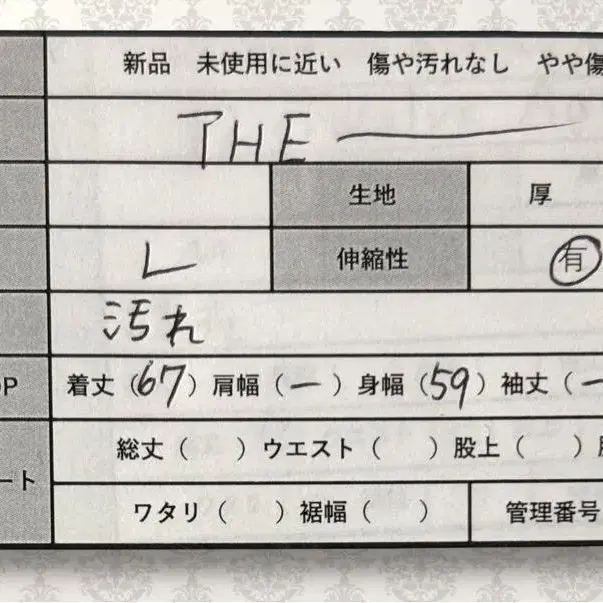 新品 未使用に近い 傷や汚れなし やや傷
THE
生地 厚
L 伸縮性 有
汚れ
OP 着丈(67)肩幅(ー)身幅(59)袖丈(ー
総丈( )ウエスト( )股上( )
ート
ワタリ( )裾幅( ) 管理番号